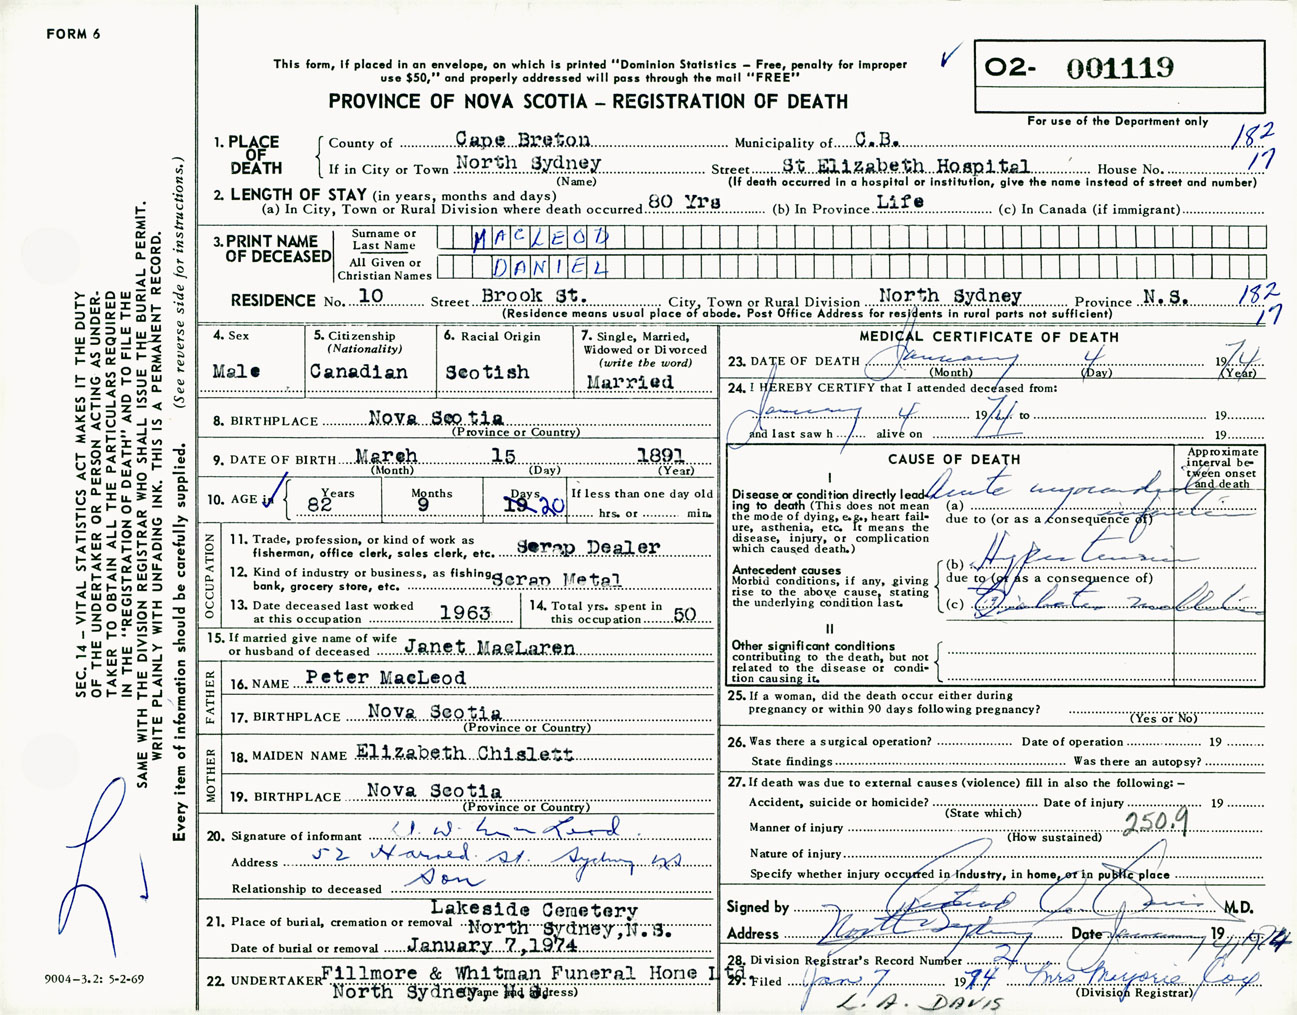 FORM 6
This form, if placed in an envelope, on which is printed "Dominion Statistics – Free, penalty for improper
use $50," and properly addressed will pass through the mail "FREE"
PROVINCE OF NOVA SCOTIA – REGISTRATION OF DEATH
02- 001119
For use of the Department only
SEC. 14 – VITAL STATISTICS ACT MAKES IT THE DUTY
OF THE UNDERTAKER OR PERSON ACTING AS UNDER-
TAKER TO OBTAIN ALL THE PARTICULARS REQUIRED
IN THE "REGISTRATION OF DEATH" AND TO FILE THE
SAME WITH THE DIVISION REGISTRAR WHO SHALL ISSUE THE BURIAL PERMIT.
WRITE PLAINLY WITH UNFADING INK. THIS IS A PERMANENT RECORD.
Every item of information should be carefully supplied. (See reverse side for instructions.)
1. PLACE OF DEATH
County of Cape Breton Municipality of C.B. 182
If in City or Town North Sydney Street St Elizabeth Hospital House No. 17
(Name) (If death occurred in a hospital or institution, give the name instead of street and number)
2. LENGTH OF STAY (in years, months and days)
(a) In City, Town or Rural Division where death occurred 80 Yrs (b) In Province Life (c) In Canada (if immigrant)
3. PRINT NAME OF DECEASED
Surname or Last Name MACLEOD
All Given or Christian Names DANIEL
RESIDENCE No. 10 Street Brook St. City, Town or Rural Division North Sydney Province N.S. 182
(Residence means usual place of abode. Post Office Address for residents in rural parts not sufficient) 17
4. Sex Male
5. Citizenship (Nationality) Canadian
6. Racial Origin Scotish
7. Single, Married, Widowed or Divorced (write the word) Married
8. BIRTHPLACE Nova Scotia
(Province or Country)
9. DATE OF BIRTH March 15 1891
(Month) (Day) (Year)
10. AGE in Years 82 Months 9 Days 19 20 If less than one day old
hrs. or min.
OCCUPATION
11. Trade, profession, or kind of work as fisherman, office clerk, sales clerk, etc. Scrap Dealer
12. Kind of industry or business, as fishing, bank, grocery store, etc. Scrap Metal
13. Date deceased last worked at this occupation 1963
14. Total yrs. spent in this occupation 50
15. If married give name of wife or husband of deceased Janet MacLaren
FATHER
16. NAME Peter MacLeod
17. BIRTHPLACE Nova Scotia
(Province or Country)
MOTHER
18. MAIDEN NAME Elizabeth Chislett
19. BIRTHPLACE Nova Scotia
(Province or Country)
20. Signature of informant W. MacLeod
Address 52 St. Sydney NS
Relationship to deceased Son
21. Place of burial, cremation or removal Lakeside Cemetery
North Sydney, N.S.
Date of burial or removal January 7, 1974
22. UNDERTAKER Fillmore & Whitman Funeral Home Ltd.
North Sydney N.S.
(Name and address)
MEDICAL CERTIFICATE OF DEATH
23. DATE OF DEATH January 4 1974
(Month) (Day) (Year)
24. I HEREBY CERTIFY that I attended deceased from:
January 4 1974 to 19
and last saw h alive on 19
CAUSE OF DEATH
Approximate interval between onset and death
I
Disease or condition directly leading to death (This does not mean the mode of dying, e.g., heart failure, asthenia, etc. It means the disease, injury, or complication which caused death.)
(a) Acute myocardial infarction
due to (or as a consequence of)
Antecedent causes
Morbid conditions, if any, giving rise to the above cause, stating the underlying condition last.
(b) Hypertension
due to (or as a consequence of)
(c) Diabetes mellitus
II
Other significant conditions
contributing to the death, but not related to the disease or condition causing it.
25. If a woman, did the death occur either during
pregnancy or within 90 days following pregnancy?
(Yes or No)
26. Was there a surgical operation? Date of operation 19
State findings Was there an autopsy?
27. If death was due to external causes (violence) fill in also the following: –
Accident, suicide or homicide? Date of injury 19
(State which)
Manner of injury 250.9
(How sustained)
Nature of injury
Specify whether injury occurred in industry, in home, or in public place
Signed by M.D.
Address North Sydney Date January 1974
28. Division Registrar's Record Number 2
29. Filed Jan 7 1974 Mrs Marjorie Cox
(Division Registrar)
L. A. DAVIS
9004–3.2: 5-2-69